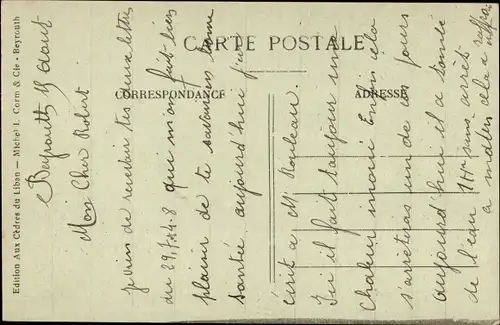 CARTE POSTALE
CORRESPONDANCE
ADRESSE
Edition Aux Cèdres du Liban - Michel I. Corm & Cie - Beyrouth
Beyrouth 11 Aout
Mon Cher Robert
je viens de recevoir tes deux lettres
du 29, et 8 qui m'on fait bien
plaisir de te savoir en bonne
santé aujourd'hui j'ai
écrit a M.
Ici il fait toujour une
chaleur inoui Enfin cela
s'arrêteras un de ces jours
aujourd'hui il a tombé
de l'eau 1 Hre sans arrêt
a midi cela a